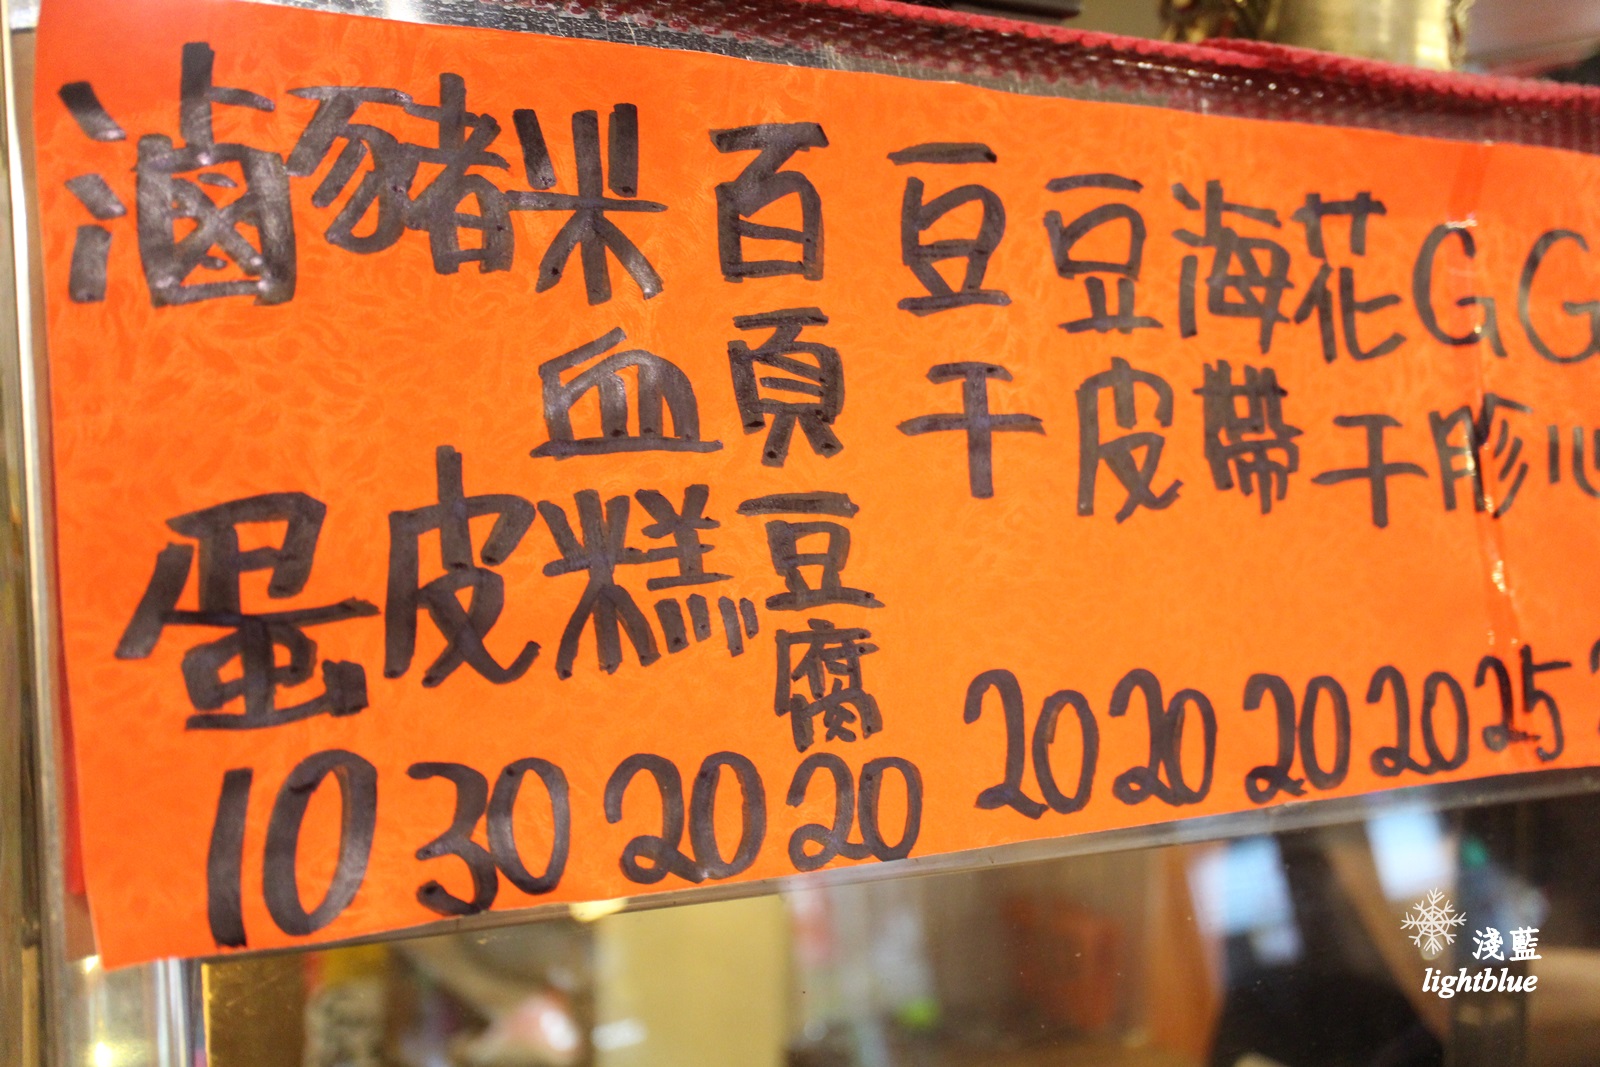 滷蛋
10
豬皮
30
米血糕
20
百頁豆腐
20
豆干
20
豆皮
20
海帶
20
花干
20
G胗
25
G心
淺藍
lightblue